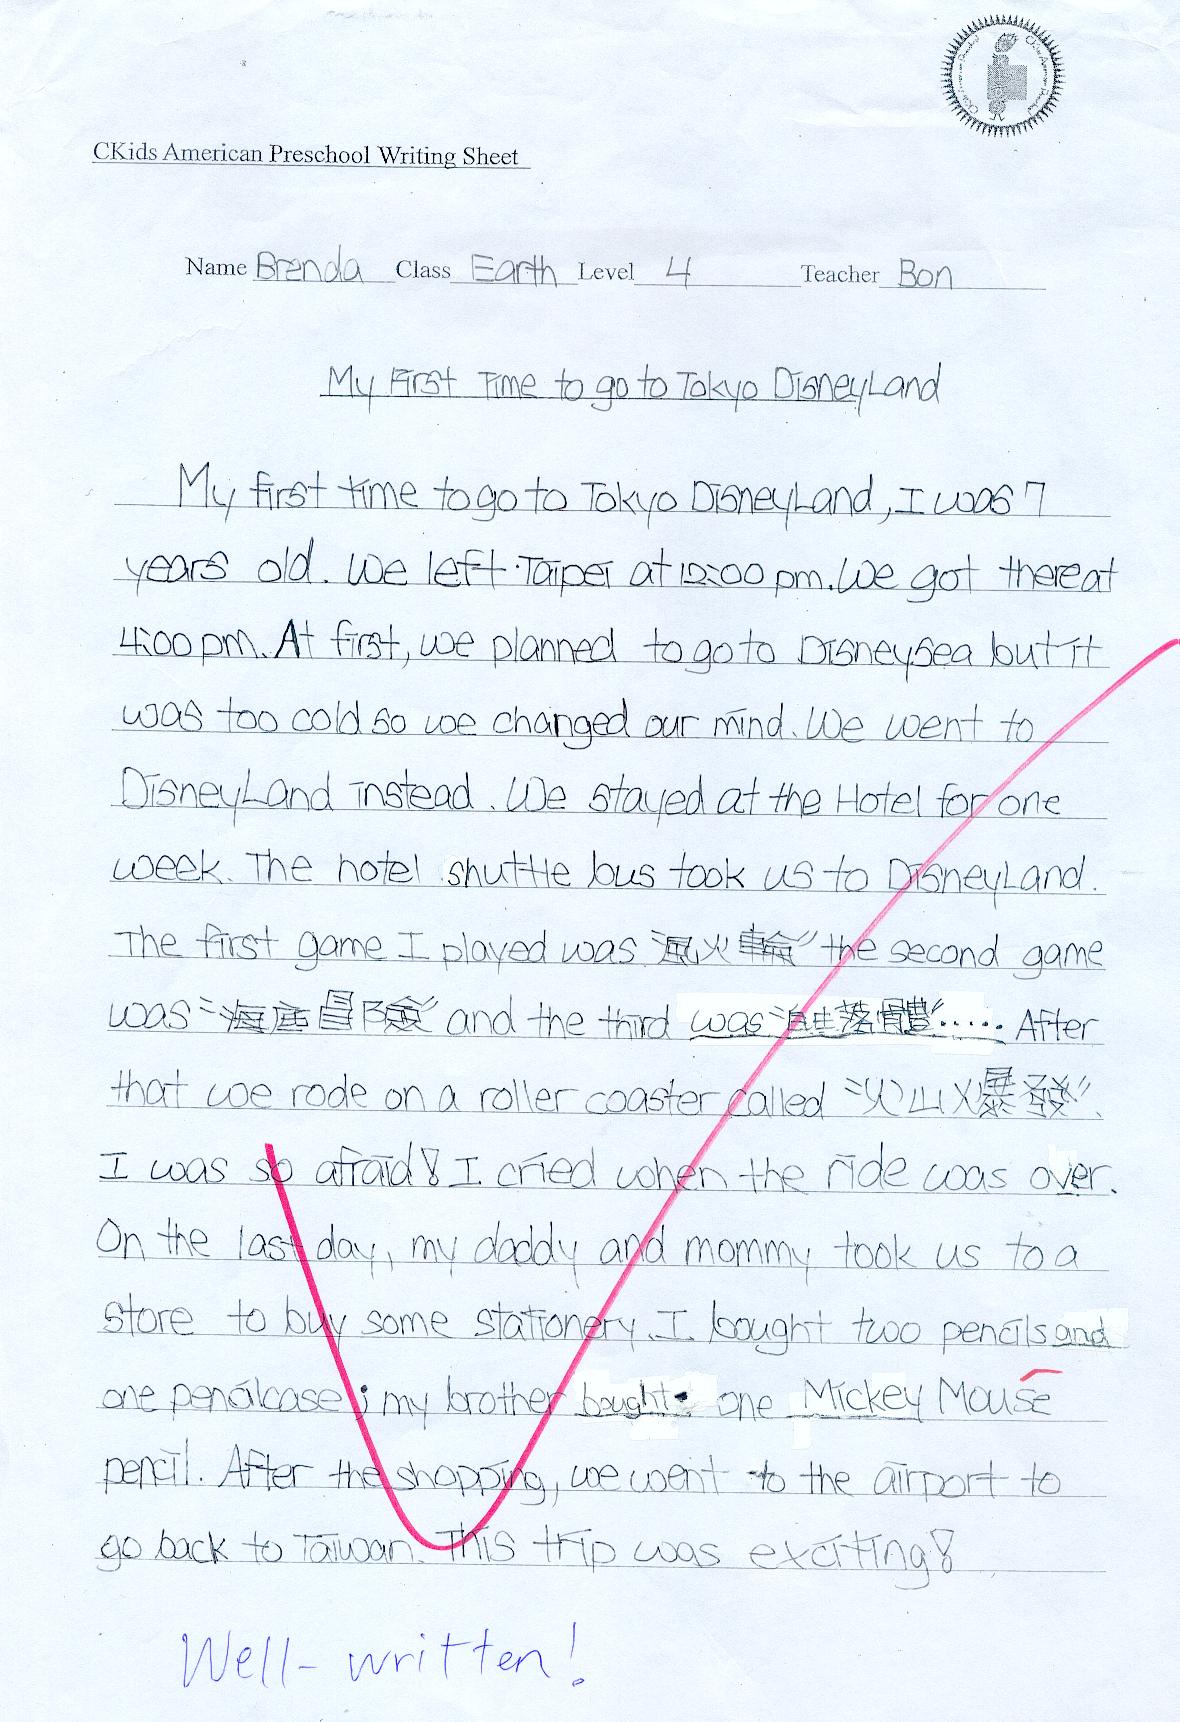 CKids American Preschool Writing Sheet
Name Brenda Class Earth Level 4 Teacher Bon
My First Time to go to Tokyo DisneyLand
My first time to go to Tokyo DisneyLand, I was 7
years old. We left Taipei at 12:00 pm. We got there at
4:00 pm. At first, we planned to go to DisneySea but it
was too cold so we changed our mind. We went to
DisneyLand instead. We stayed at the Hotel for one
week. The hotel shuttle bus took us to DisneyLand.
The first game I played was 風火輪" the second game
was "海底冒險" and the third was 自由落體"..... After
that we rode on a roller coaster called "火山爆發".
I was so afraid! I cried when the ride was over.
On the last day, my daddy and mommy took us to a
store to buy some stationery. I bought two pencils and
one pencilcase; my brother bought one Mickey Mouse
pencil. After the shopping, we went to the airport to
go back to Taiwan. This trip was exciting!
Well-written!